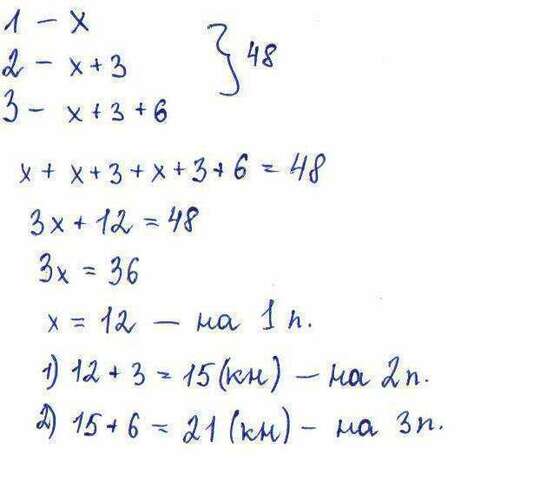 1 – x
2 – x + 3 } 48
3 – x + 3 + 6
x + x + 3 + x + 3 + 6 = 48
3x + 12 = 48
3x = 36
x = 12 – на 1 п.
1) 12 + 3 = 15 (км) – на 2 п.
2) 15 + 6 = 21 (км) – на 3 п.